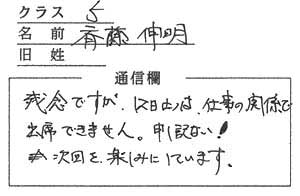 クラス 5
名前 斉藤 伸明
旧姓
通信欄
残念ですが、12日(土)は、仕事の関係で
出席できません。申訳ない!
次回を楽しみにしています。